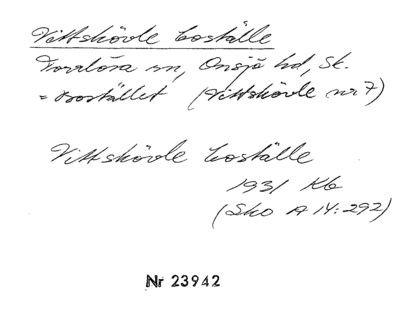 Vittskövle boställe
Torrlösa sn, Onsjö hd, Sk.
= Bostället (Vittskövle nr 7)
Vittskövle boställe
1931 Kb
(Sko A 14:292)
Nr 23942